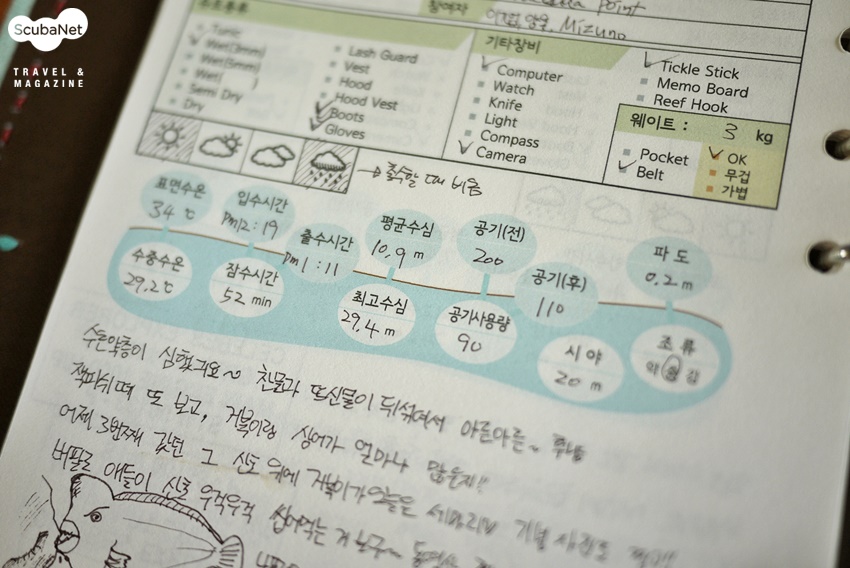 ScubaNet
TRAVEL &
MAGAZINE
Point
참여자
Mizuno
Tunic
Wet(3mm)
Wet(5mm)
Wet( )
Semi Dry
Dry
Lash Guard
Vest
Hood
Hood Vest
Boots
Gloves
기타장비
Computer
Watch
Knife
Light
Compass
Camera
Tickle Stick
Memo Board
Reef Hook
웨이트 : 3 kg
Pocket
Belt
OK
무겁
가볍
→ 출수할 때 비옴
표면수온
34 ℃
입수시간
Pm12 : 19
출수시간
Pm 1 : 11
평균수심
10.9 m
공기(전)
200
공기(후)
110
파 도
0.2 m
수중수온
29.2℃
잠수시간
52 min
최고수심
29.4 m
공기사용량
90
시 야
20 m
조 류
약 중 강
수온약층이 심했고요~ 찬물과 뜨신물이 뒤섞여서 아른아른~
잭피쉬떼 또 보고, 거북이랑 상어가 얼마나 많은지!!
어제 3번째 갔던 그 산호 위에 거북이가 오늘은 세마리나 기념 사진도
버팔로 애들이 산호 우걱우걱 씹어먹는 거 보구~ 동영상